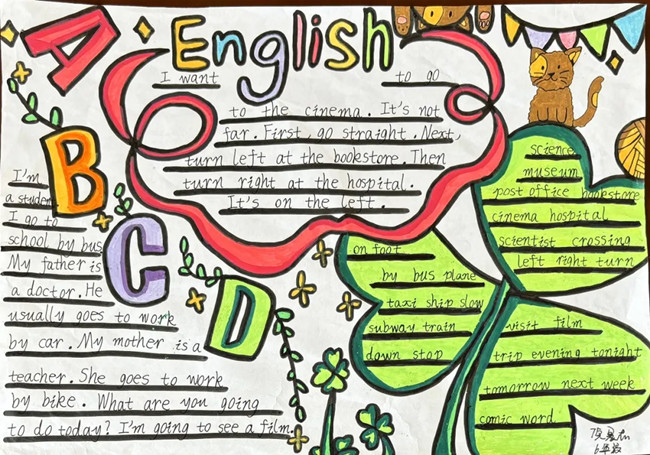 A
English
B
C
D
I want to go
to the cinema. It's not
far. First, go straight. Next,
turn left at the bookstore. Then
turn right at the hospital.
It's on the left.
I'm
a student
I go to
school by bus
My father is
a doctor. He
usually goes to work
by car. My mother is a
teacher. She goes to work
by bike. What are you going
to do today? I'm going to see a film.
science
museum
post office bookstore
cinema hospital
scientist crossing
left right turn
on foot
by bus plane
taxi ship slow
subway train
down stop
visit film
trip evening tonight
tomorrow next week
comic word